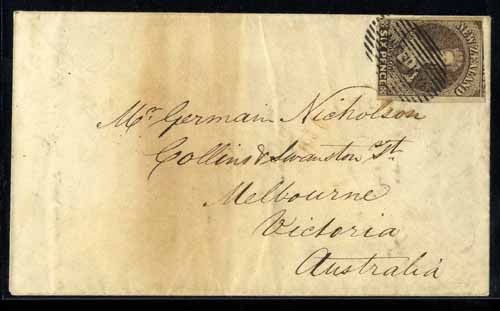 SIX PENCE
NEW ZEALAND
Mr. Germain Nicholson
Collins & Swanston St.
Melbourne
Victoria
Australia